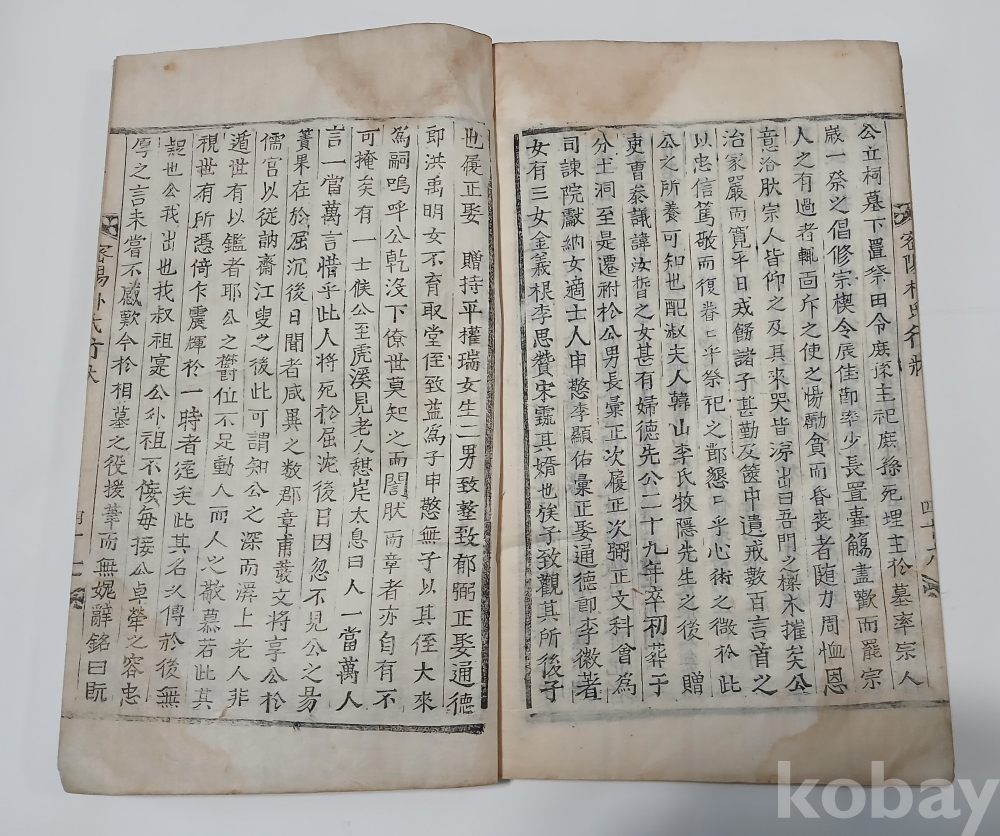 公立柯墓下置祭田令庶孫主祀庶孫死埋主於墓率宗人
歲一祭之倡修宗楔令辰佳節率少長置臺觴盡歡而罷宗
人之有過者輒面斥之使之惕勵貪而昏喪者随力周恤恩
意洽肰宗人皆仰之及其來哭皆涕出曰吾門之樑木摧矣公
治家嚴而寬平日戒飭諸子甚勤及篋中遺戒數百言音之
以忠信篤敬而復眷眷乎祭祀之鄙懇懇乎心術之微於此
公之所養可知也配淑夫人韓山李氏牧隱先生之後 贈
吏曹叅議諱汝晳之女甚有婦德先公二十九年卒初葬于
分土洞至是遷祔於公男長彙正次履正次弼正文科會為
司諫院獻納女適士人申慜李顯佑彙正娶通德郎李徽著
女有三女金義根李思贊宋霖其婿也族子致觀其所後子
也履正娶 贈持平權瑞女生二男致整致郁弼正娶通德
郎洪禹明女不育取堂侄致益為子申慜無子以其侄大來
為嗣嗚呼公乾沒下僚世莫知之而誾肰而章者亦自有不
可掩矣有一士候公至虎溪見老人憇岸太息曰人一當萬人
言一當萬言惜乎此人將死於屈沱後日因忽不見公之易
簀果在於屈沉後日聞者咸異之数郡章甫裝文將享公於
儒宫以從訥齋江叟之後此可謂知公之深而漭上老人非
遁世有以鑑者耶公之欝位不足動人而人之敬慕若此其
視世有所憑倚乍震輝於一時者逹矣此其名久傳於後無
起也公我出也找叔祖寔公外祖不儂每接公卓犖之容忠
厚之言未嘗不感歎今於相墓之役援筆而無媿辭銘曰旣
密陽朴氏行狀
密陽朴氏行狀